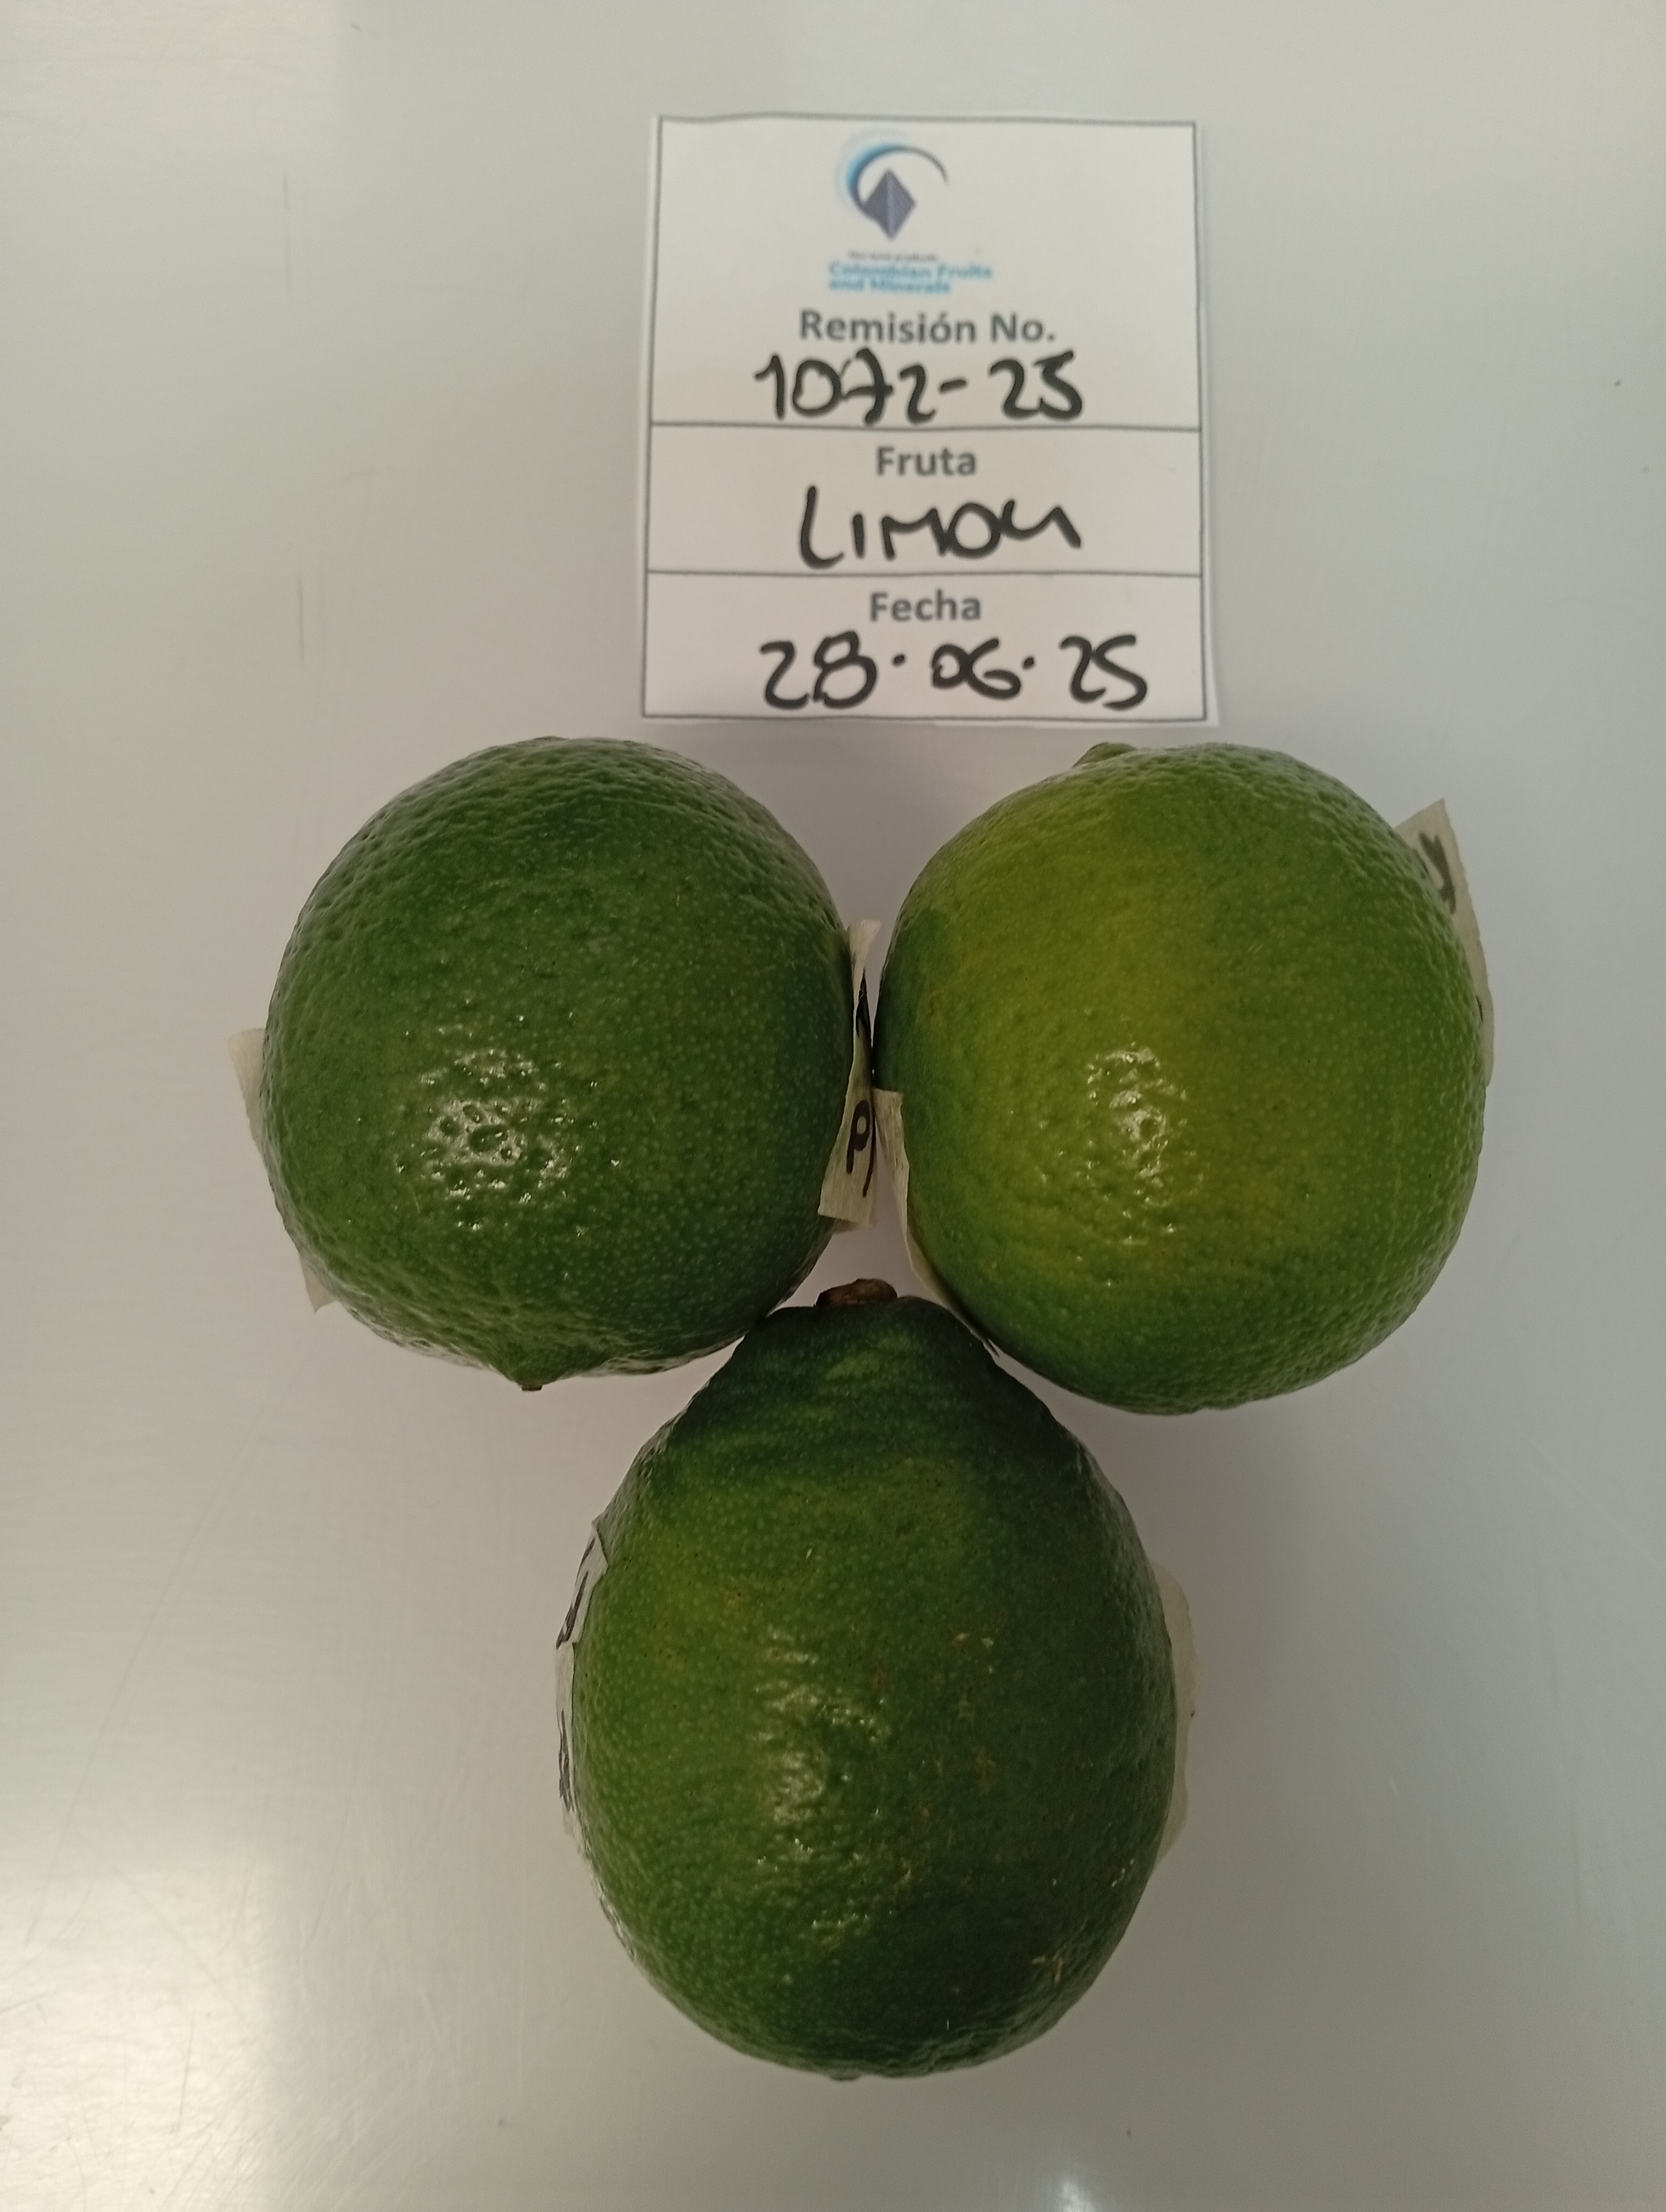 Colombian Fruits
and Minerals
Remisión No.
1072-25
Fruta
LIMON
Fecha
28·06·25